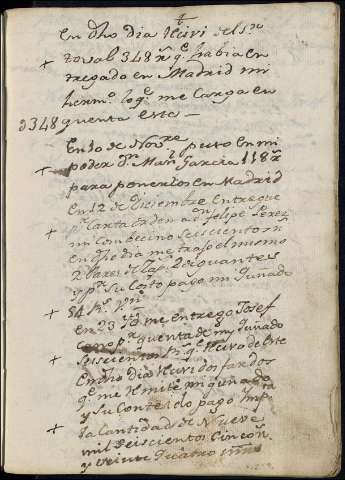 En dho dia Recivi del Sr
toval 348 rs qe habia en
tregado en Madrid mi
hermo lo qe me carga en
3348 quenta este
En 10 de Novre puso en mi
poder dn Manl Garcia 118 rs
para ponerlos en Madrid
En 12 de Diciembre Entregue
pr carta orden a dn Felipe Perez
mi Combecino Seiscientos rs
en dho dia me trajo el mismo
2 pares de 2 de guantes
y pr su costo pago mi Cuñado
54 rs vn
en 23 Yd me entrego Josef
Cano pr quenta de my Cuñado
Seiscientos rs qe Recivo de este
En dho dia Recivi dos fardos
qe me Remite mi cuñado
y su Contenido pago Impta
la Cantidad de Nueve
mil Seiscientos Cincon
y veinte quatro mrs